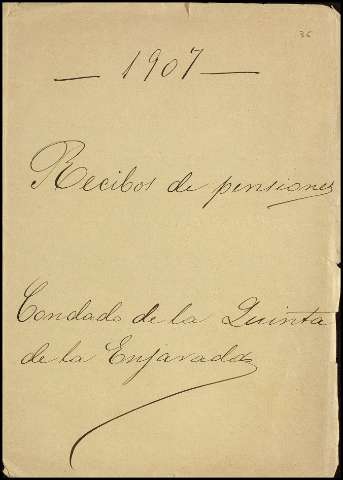 36
— 1907 —
Recibos de pensiones
Condado de la Quinta
de la Enjarada